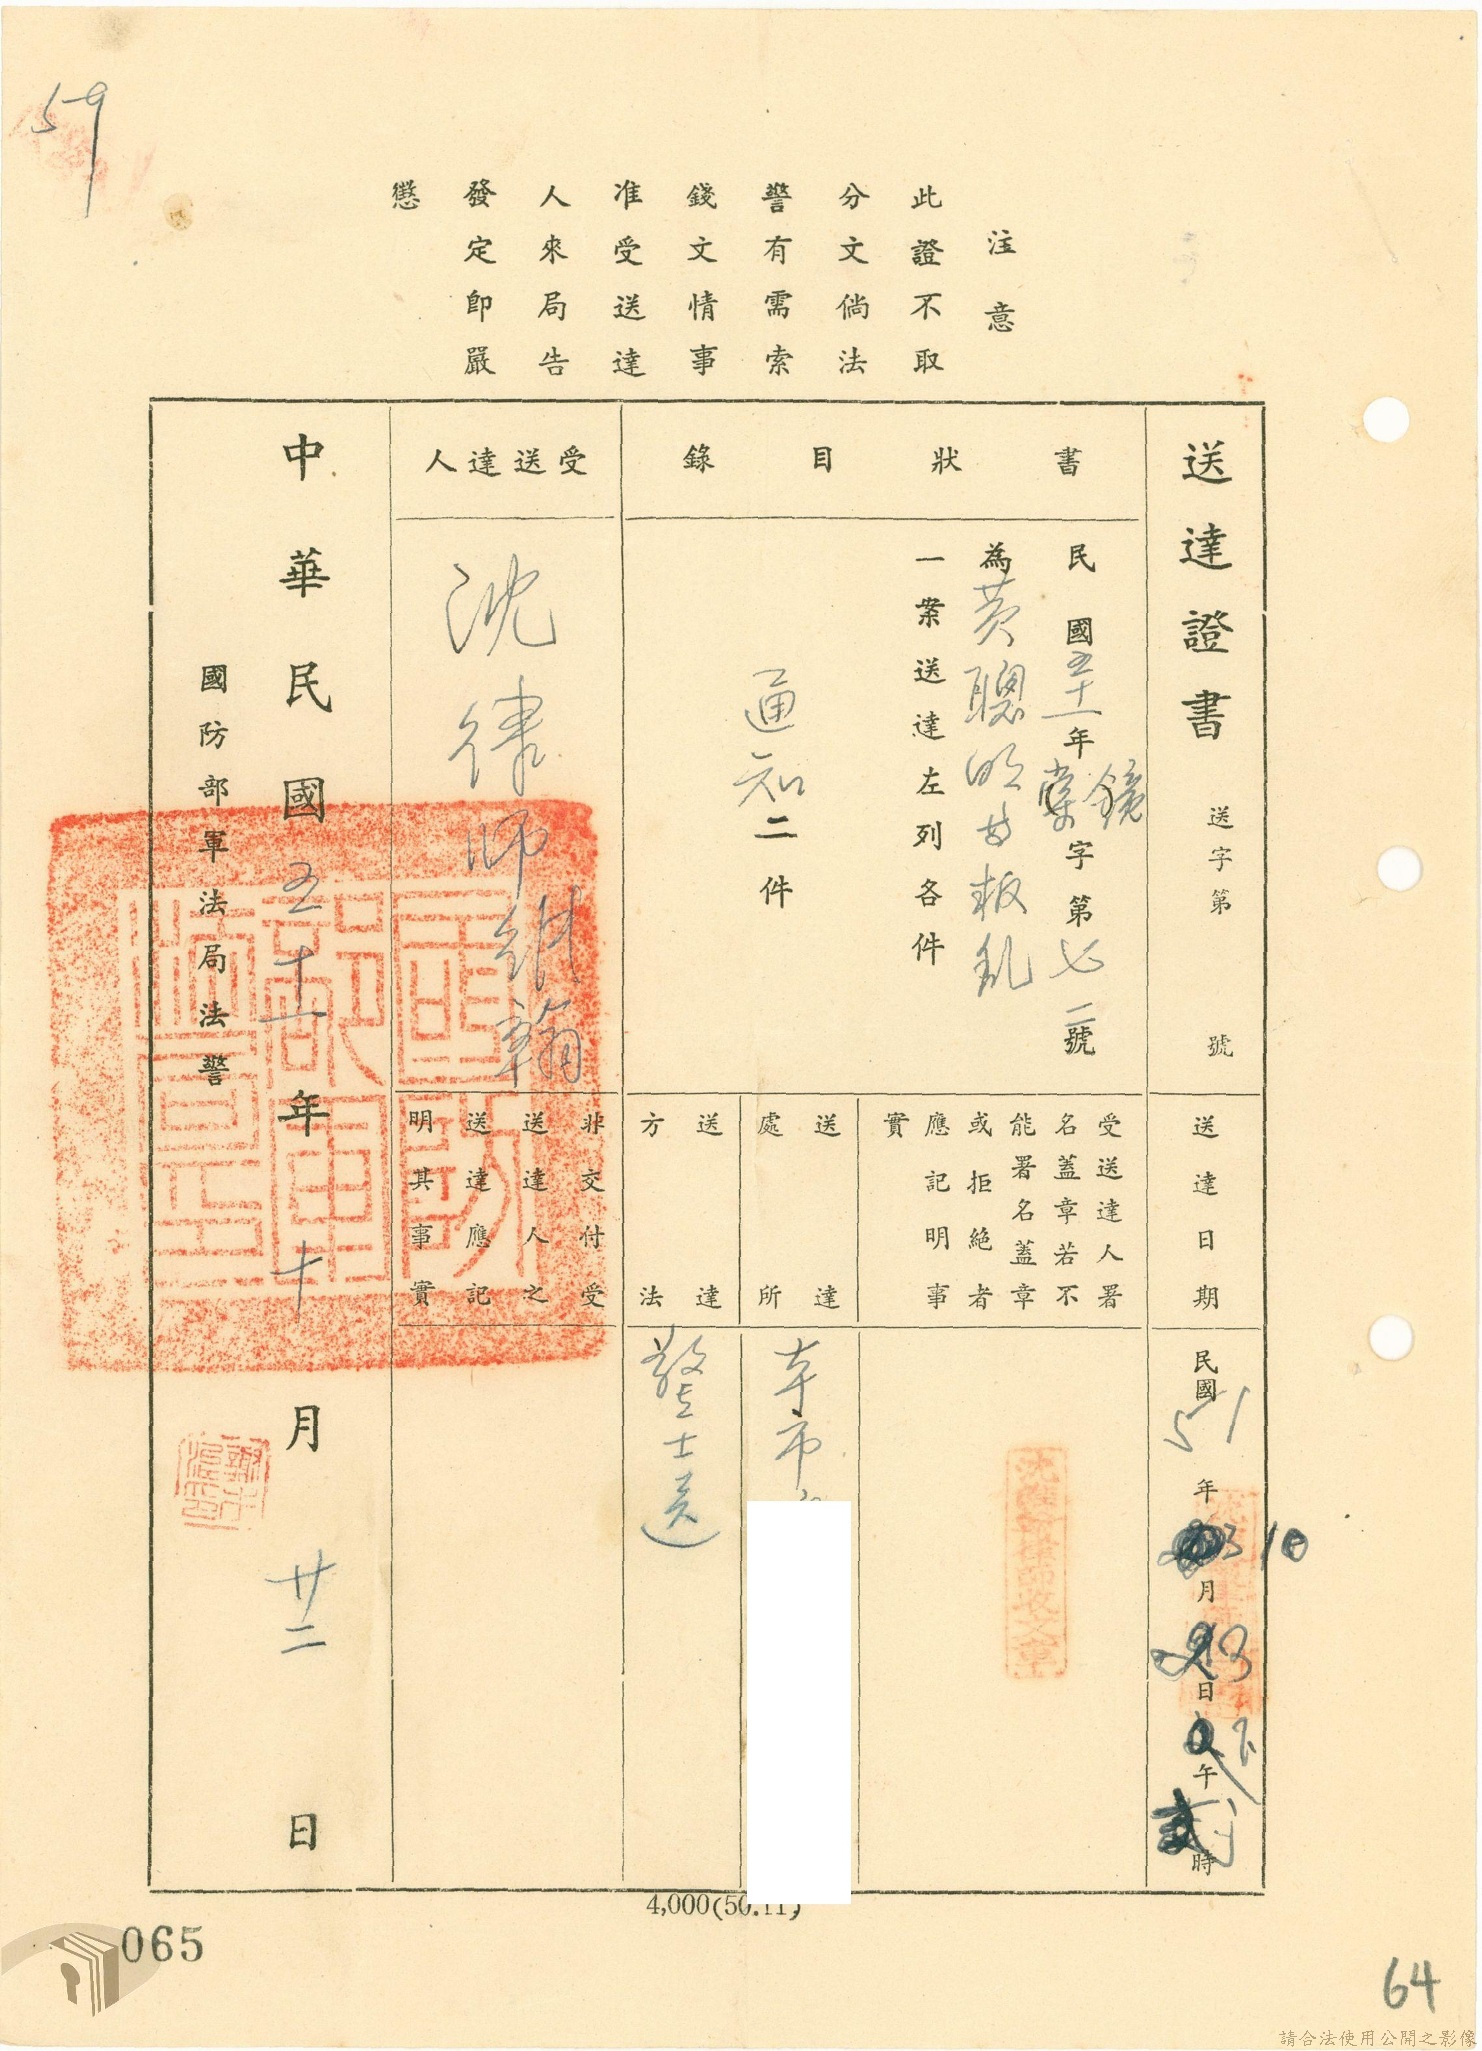 59
注意
此證不取
分文倘法
警有需索
錢文情事
准受送達
人來局告
發定即嚴
懲
送達證書 送字第 號
書狀目錄
民國五十一年 字第七二號
鏡
為黃聰明等叛乱
一案送達左列各件
通知二件
受送達人
沈律師 翰
送達日期
民國51年10月23日下午 時
受送達人署
名蓋章若不
能署名蓋章
或拒絕者
應記明事
實
送達
處所
本市
送達
方法
警士送
非交付受
送達人之
送達應記
明其事實
中華民國五十一年十月廿二日
國防部軍法局法警
4,000(50.11)
065
64
請合法使用公開之影像